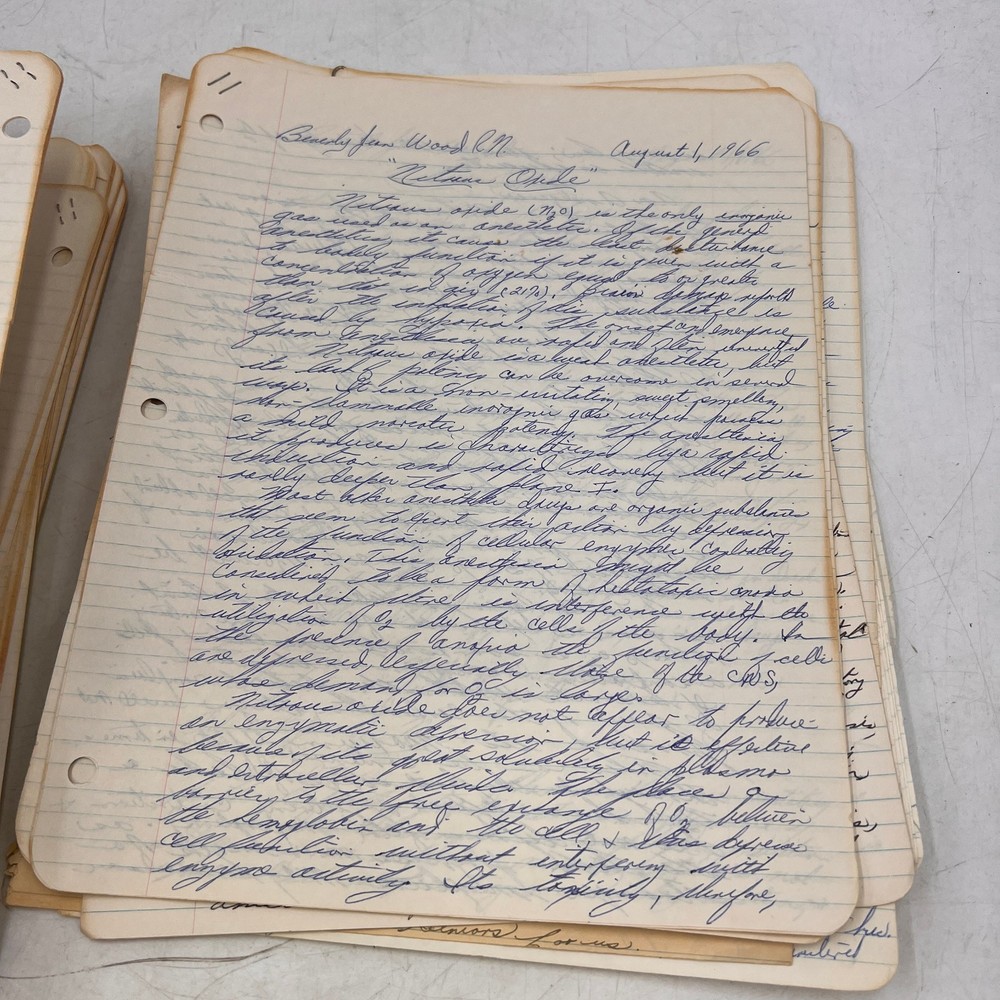 Beverly Jean Wood R.N. August 1, 1966
"Nitrous Oxide"
Nitrous oxide (N2O) is the only inorganic
gas used as an anesthetic. Of the general
anesthetics it causes the least disturbance
to bodily function if it is given with a
concentration of oxygen equal to or greater
than that in air (21%). Brain damage reported
after the inhalation of this substance is
caused by hypoxia. The onset and emergence
from are rapid and often uneventful
Nitrous oxide is a weak anesthetic, but
its lack of potency can be overcome in several
ways. It is a non-irritating, sweet smelling,
non-flammable inorganic gas which possess
a mild narcotic potency. The anesthesia
it produces is characterized by a rapid
induction and rapid recovery but it is
rarely deeper than plane I.
Most other anesthetic drugs are organic substances
that seem to exert their action by depression
of the function of cellular enzymes controlling
oxidation. This anesthesia might be
considered to be a form of histotoxic anoxia
in which there is interference with the
utilization of O2 by the cells of the body. In
the presence of anoxia the function of cells
are depressed, especially those of the CNS,
whose demand for O2 is large.
Nitrous oxide does not appear to produce
an enzymatic depression, but is effective
because of its great solubility in plasma
and extracellular fluids. The place a
barrier to the free exchange of O2 between
the hemoglobin and the cell & this depress
cell function without interfering with
enzyme activity Its toxicity, therefore,
seniors for us.